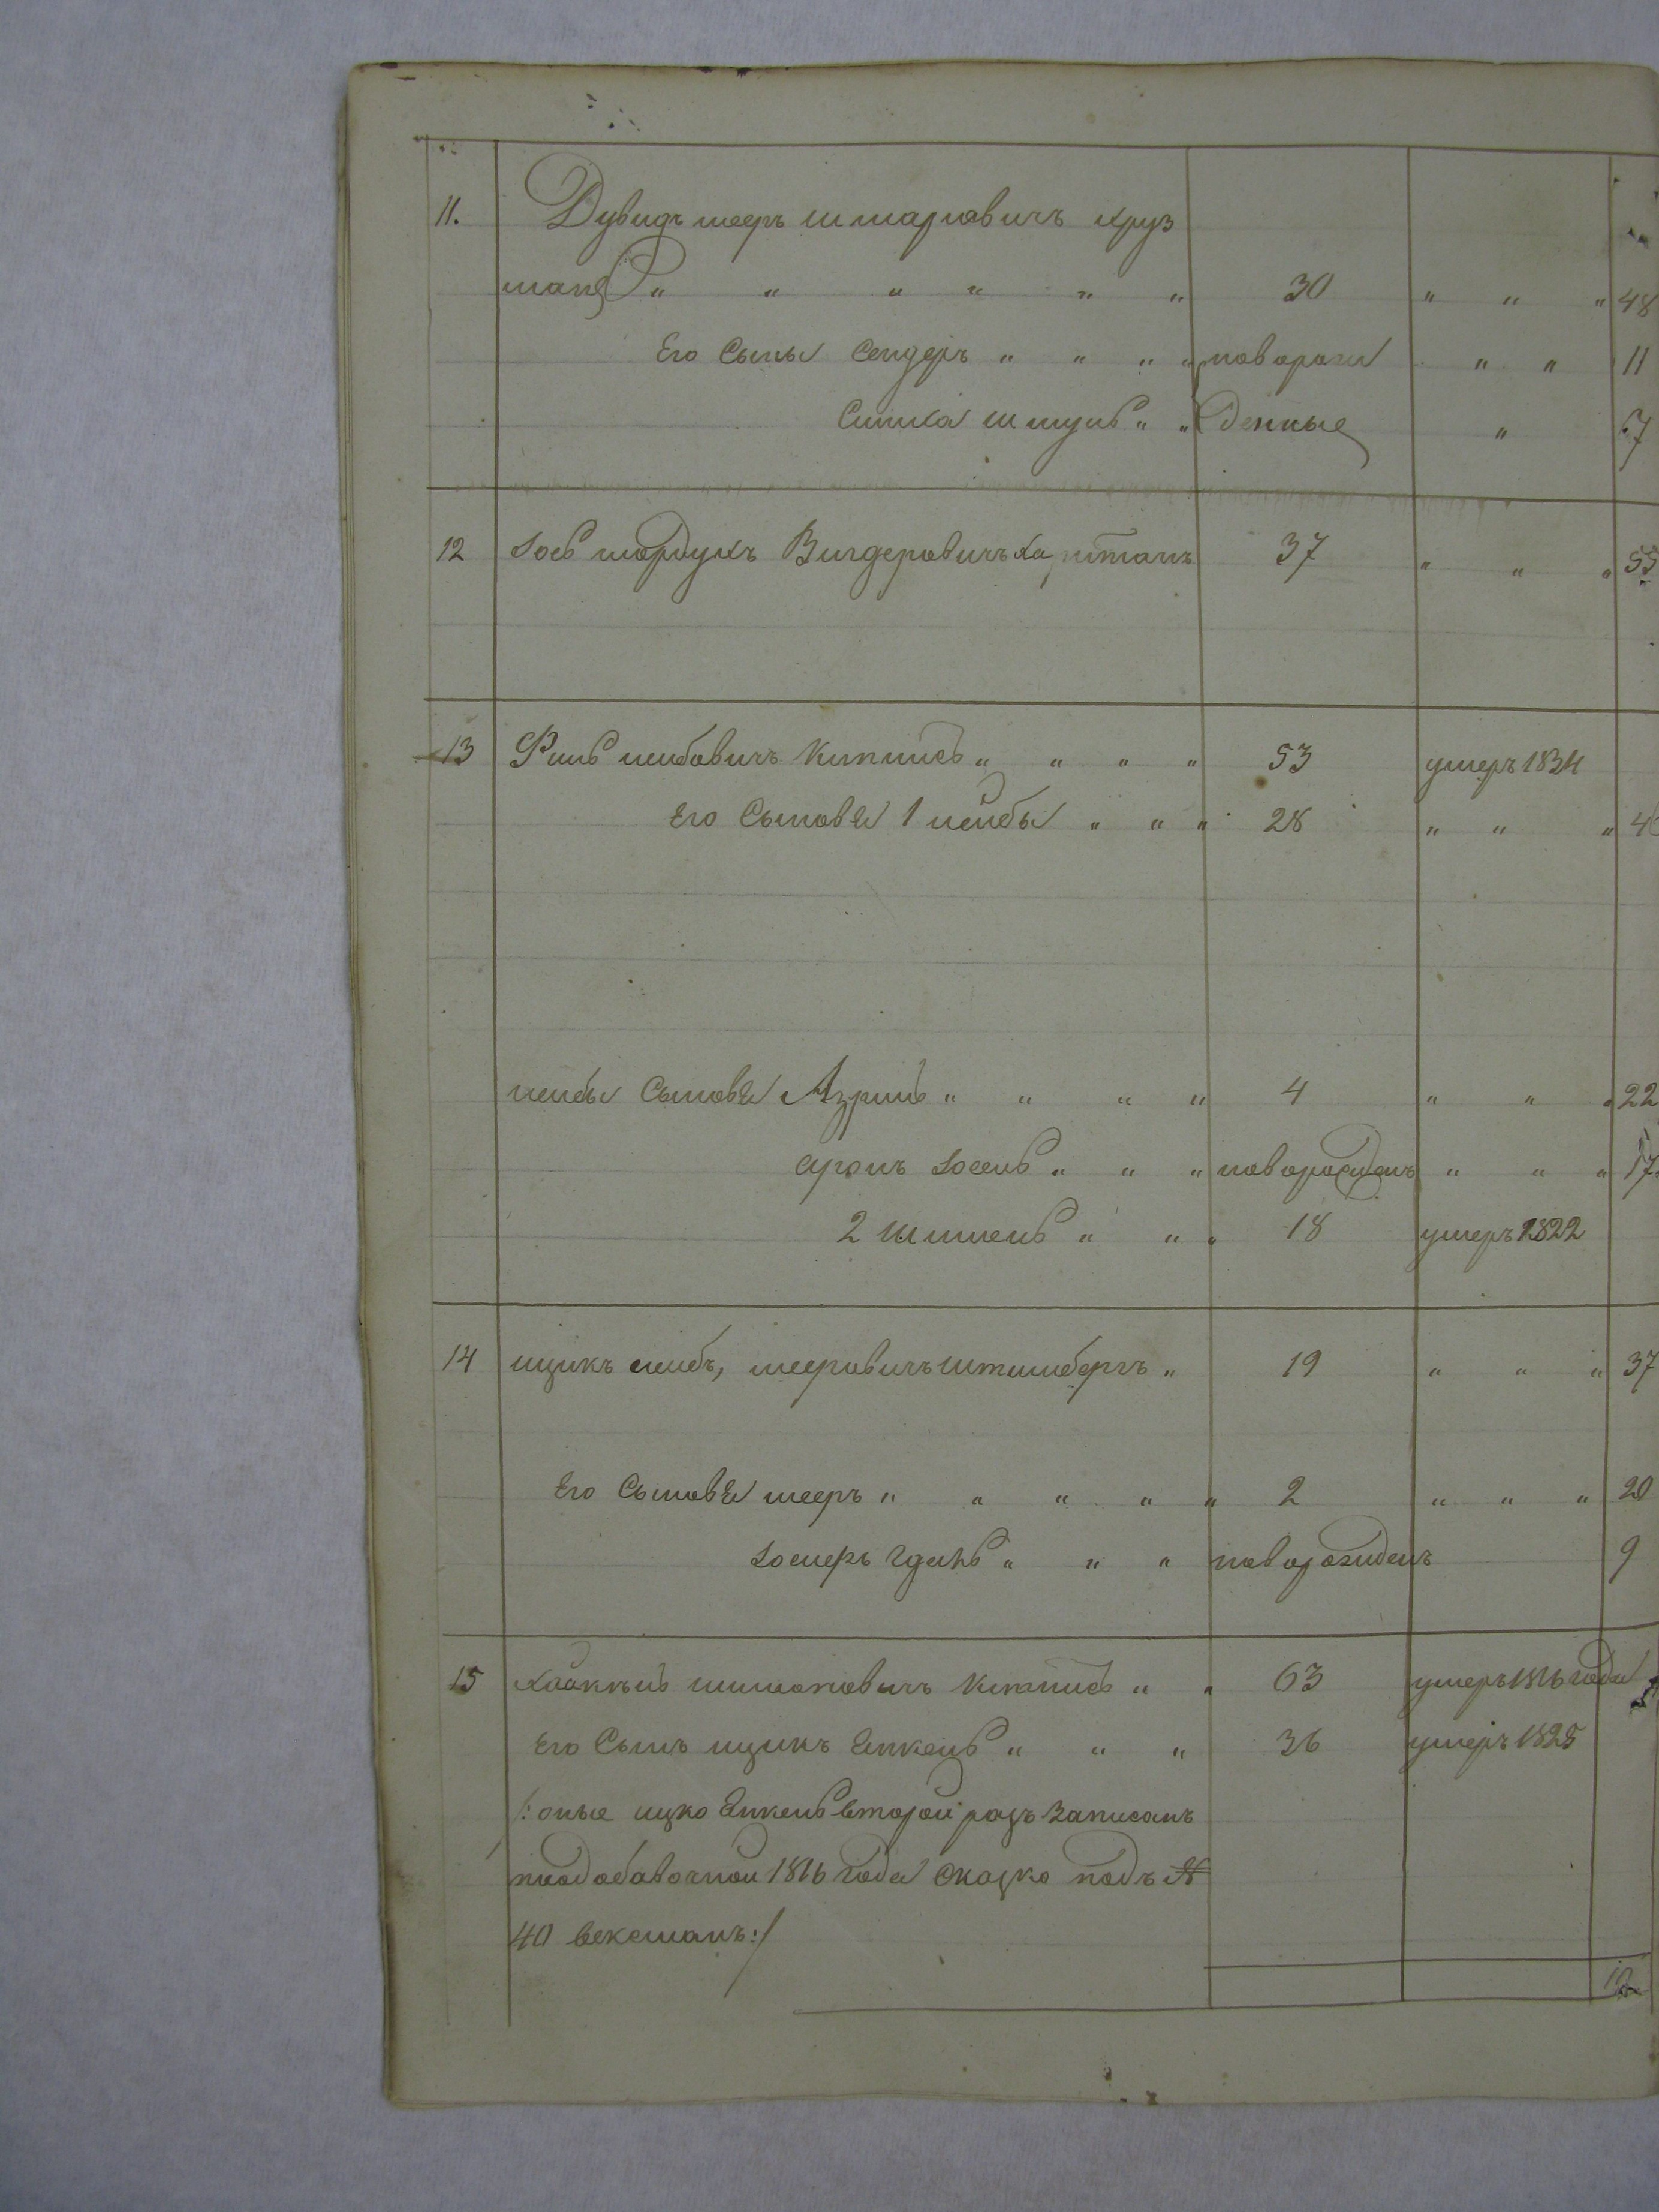 11. Дувидъ мееръ шмаріовичъ круз
манъ " " " " " " 30 " " " 48
Его Сыны Сендеръ " " " " новорож " " 11
Симха шмуль " " денные " 7
12 Іосъ мордухъ Вигдеровичъ 37 " " " 55
13 Фишъ лейбовичъ Кипнисъ " " " " 53 умеръ 1834
Его Сыновья 1 лейбы " " " 28 " " "
лейбы Сыновья Азриль " " " " 4 " " " 22
аронъ Іосель " " " новорожденъ " " " 17
2 Шмиель " " " 18 умеръ 1822
14 ицикъ лейбъ, мееровичъ штимбергъ " 19 " " " 37
Его Сыновья мееръ " " " " " 2 " " " 20
" " " новорожденъ 9
15 шимоновичъ Кипнисъ " " 63 умеръ 1816 года
Его Сынъ ицикъ Янкель " " " 36 умеръ 1825
/: оные ицко Янкель второй разъ Записанъ
подобавочной 1816 года сказко подъ №
40 :/